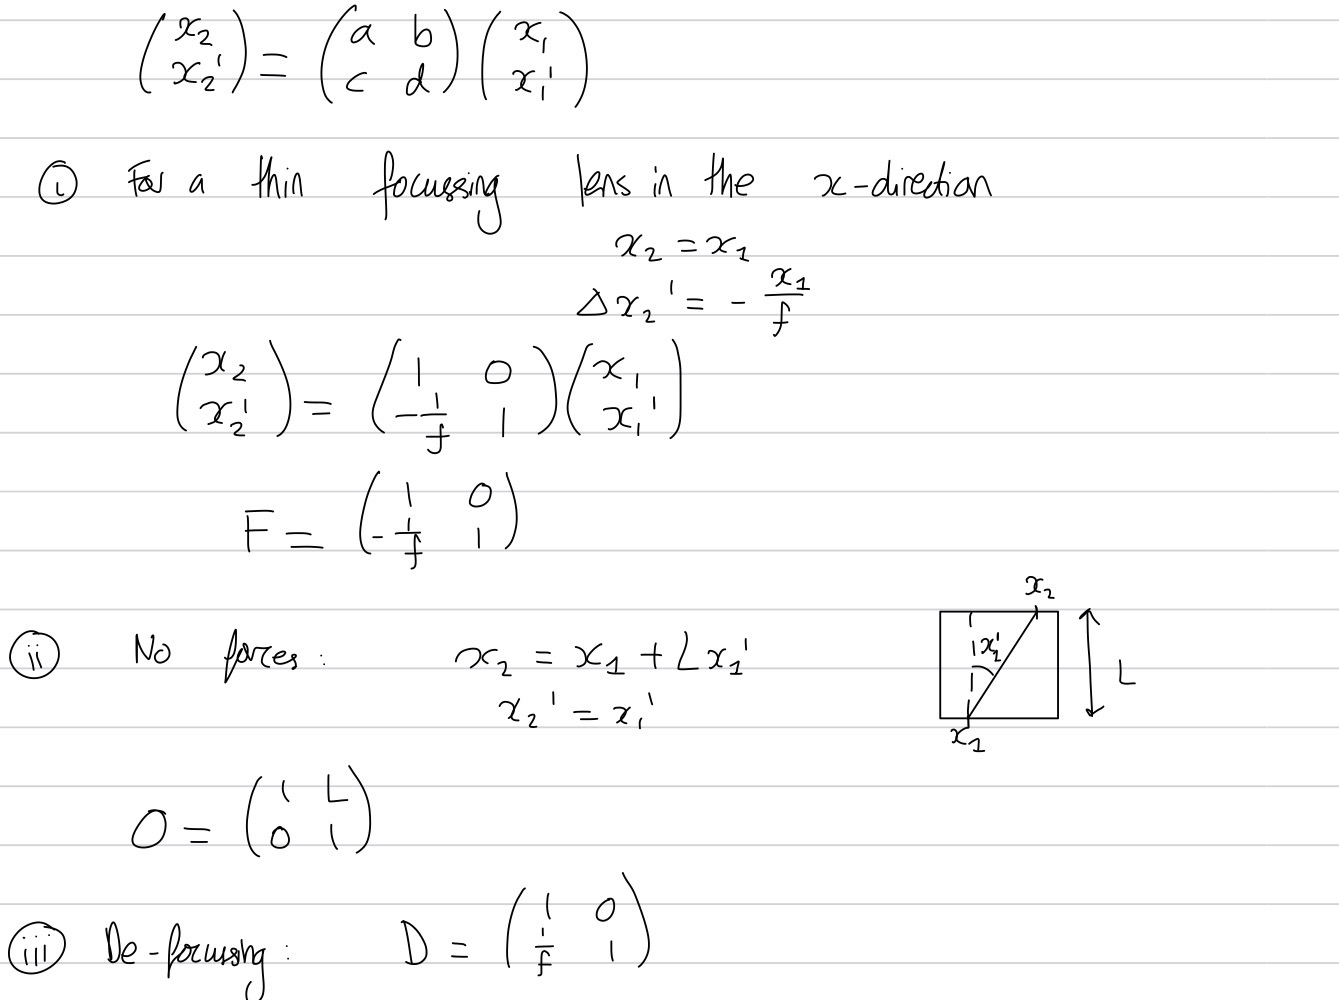 (x₂ x₂') = (a b c d) (x₁ x₁')
(i) For a thin focussing lens in the x-direction
x₂ = x₁
Δx₂' = - x₁/f
(x₂ x₂') = (1 0 -1/f 1) (x₁ x₁')
F = (1 0 -1/f 1)
(ii) No forces: x₂ = x₁ + Lx₁'
x₂' = x₁'
x₂
x₁
L
O = (1 L 0 1)
(iii) De-focusing: D = (1 0 1/f 1)